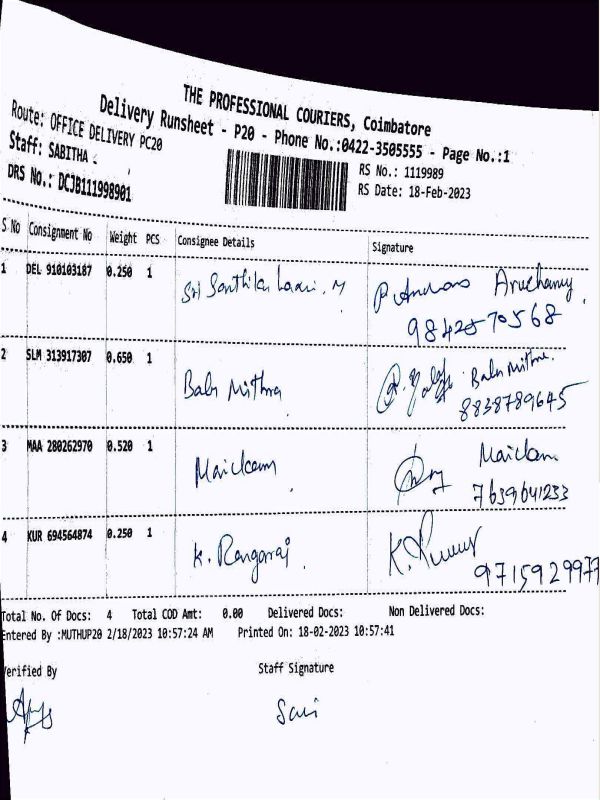 THE PROFESSIONAL COURIERS, Coimbatore
Delivery Runsheet - P20 - Phone No.:0422-3505555 - Page No.:1
Route: OFFICE DELIVERY PC20
Staff: SABITHA .
DRS No.: DCJB111998901
RS No.: 1119989
RS Date: 18-Feb-2023
S No Consignment No Weight PCS Consignee Details Signature
1 DEL 910103187 0.250 1 Sri M
9842570568
2 SLM 313917307 0.650 1 Babu Mithra Babu Mithra.
8838789645
3 MAA 280262970 0.520 1
7639641233
4 KUR 694564874 0.250 1 K. Rangaraj . K.
9715929977
Total No. Of Docs: 4 Total COD Amt: 0.00 Delivered Docs: Non Delivered Docs:
Entered By :MUTHUP20 2/18/2023 10:57:24 AM Printed On: 18-02-2023 10:57:41
erified By Staff Signature